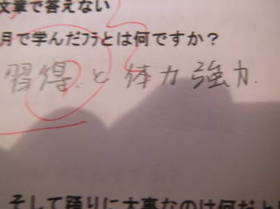 文章で答えない
月で学んだフラとは何ですか？
習得と体力強力.
そして踊りに大事なのは何だと